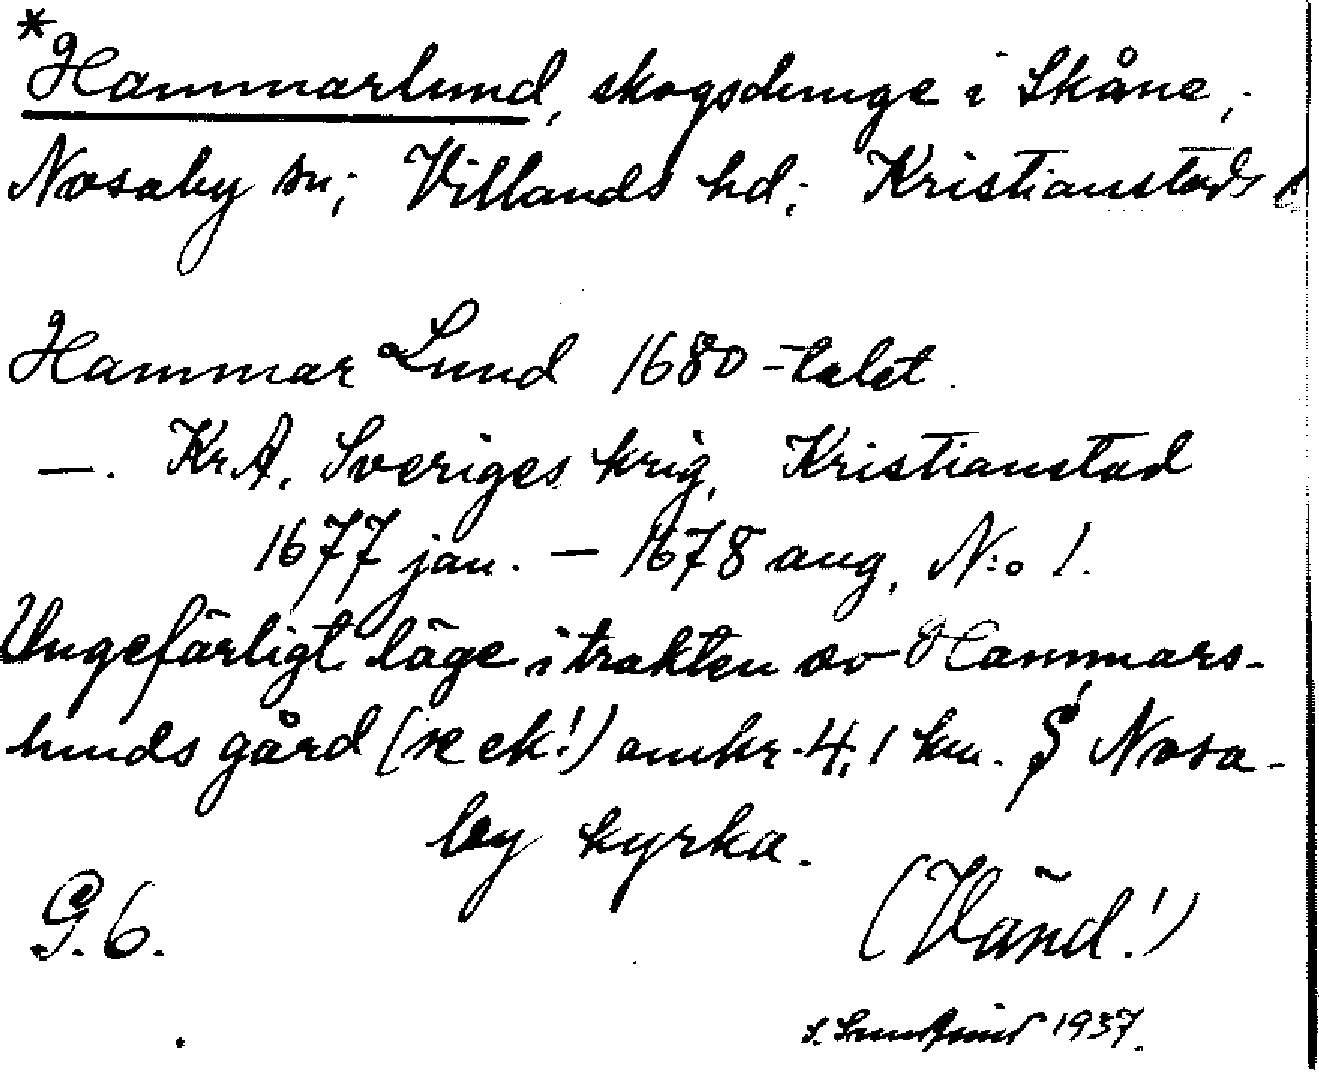 *Hammarlund, skogsdunge i Skåne,
Nosaby sn; Villands hd; Kristianstads l
Hammar Lund 1680-talet.
—. Kr.A. Sveriges krig, Kristianstad
1677 jan. — 1678 aug, N:o 1.
Ungefärligt läge i trakten av Hammars-
lunds gård (se ek!) omkr. 4,1 km. S Nosa-
by kyrka.
G.6.
(Vänd!)
1937.